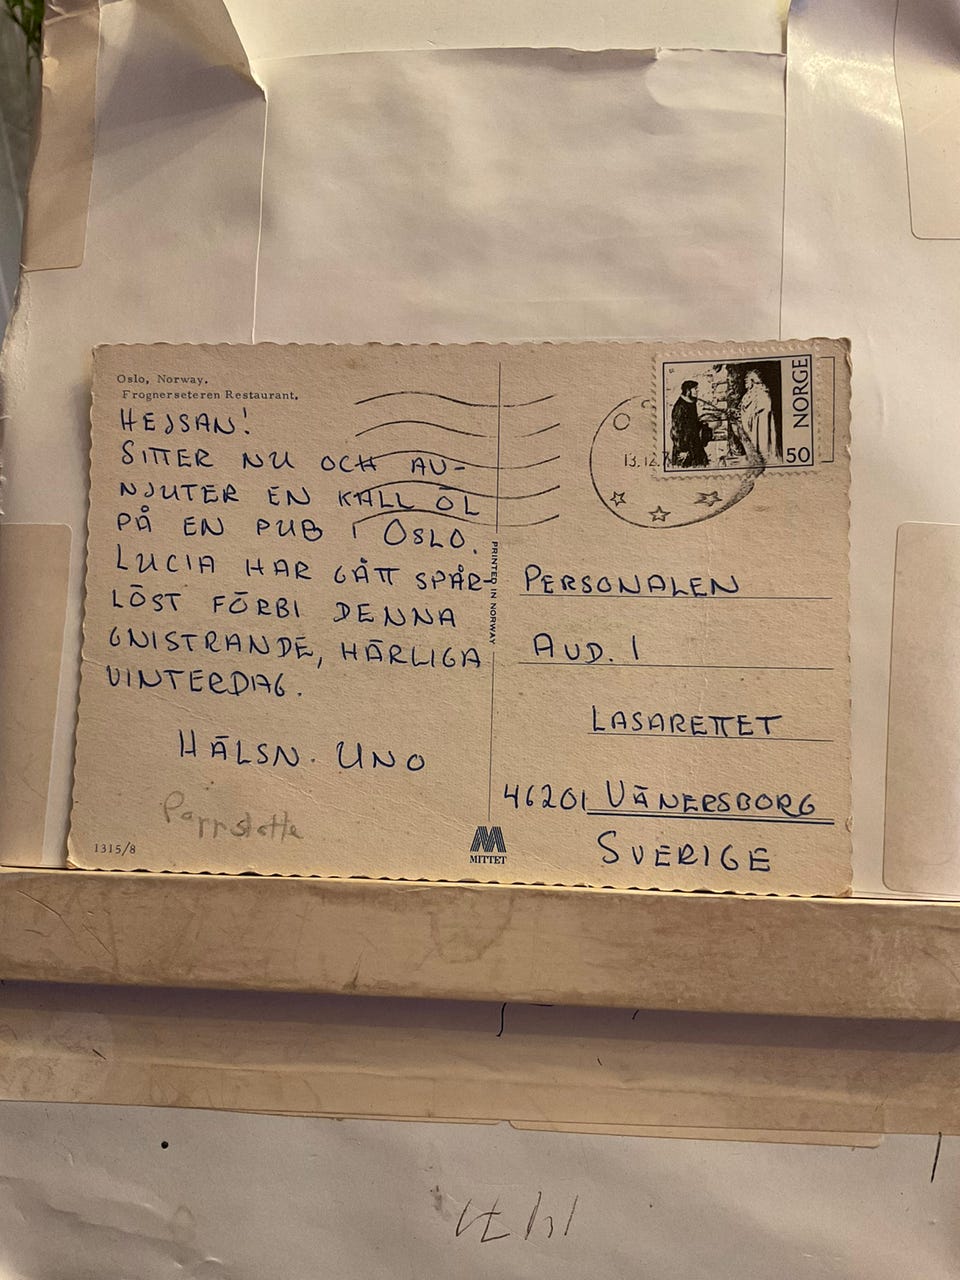 Oslo, Norway.
Frognerseteren Restaurant.
HEJSAN!
SITTER NU OCH AV-
NJUTER EN KALL ÖL
PÅ EN PUB I OSLO.
LUCIA HAR GÅTT SPÅR-
LÖST FÖRBI DENNA
GNISTRANDE, HÄRLIGA
VINTERDAG.
HÄLSN. UNO
1315/8
PRINTED IN NORWAY
MITTET
NORGE
50
13.12.7
PERSONALEN
AVD. 1
LASARETTET
46201 VÄNERSBORG
SVERIGE